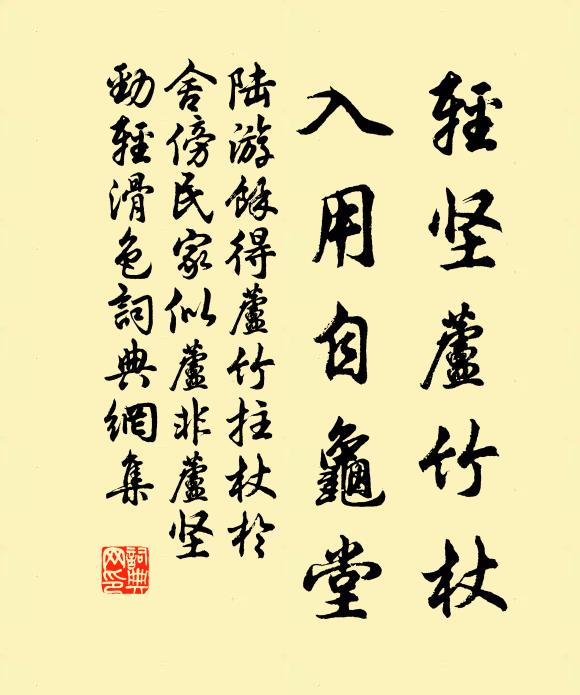 輕坚蘆竹杖
入用自龜堂
陆游馀得蘆竹拄杖於
舍傍民家似蘆非蘆坚
勁輕滑色詞典網集
詞典
网印